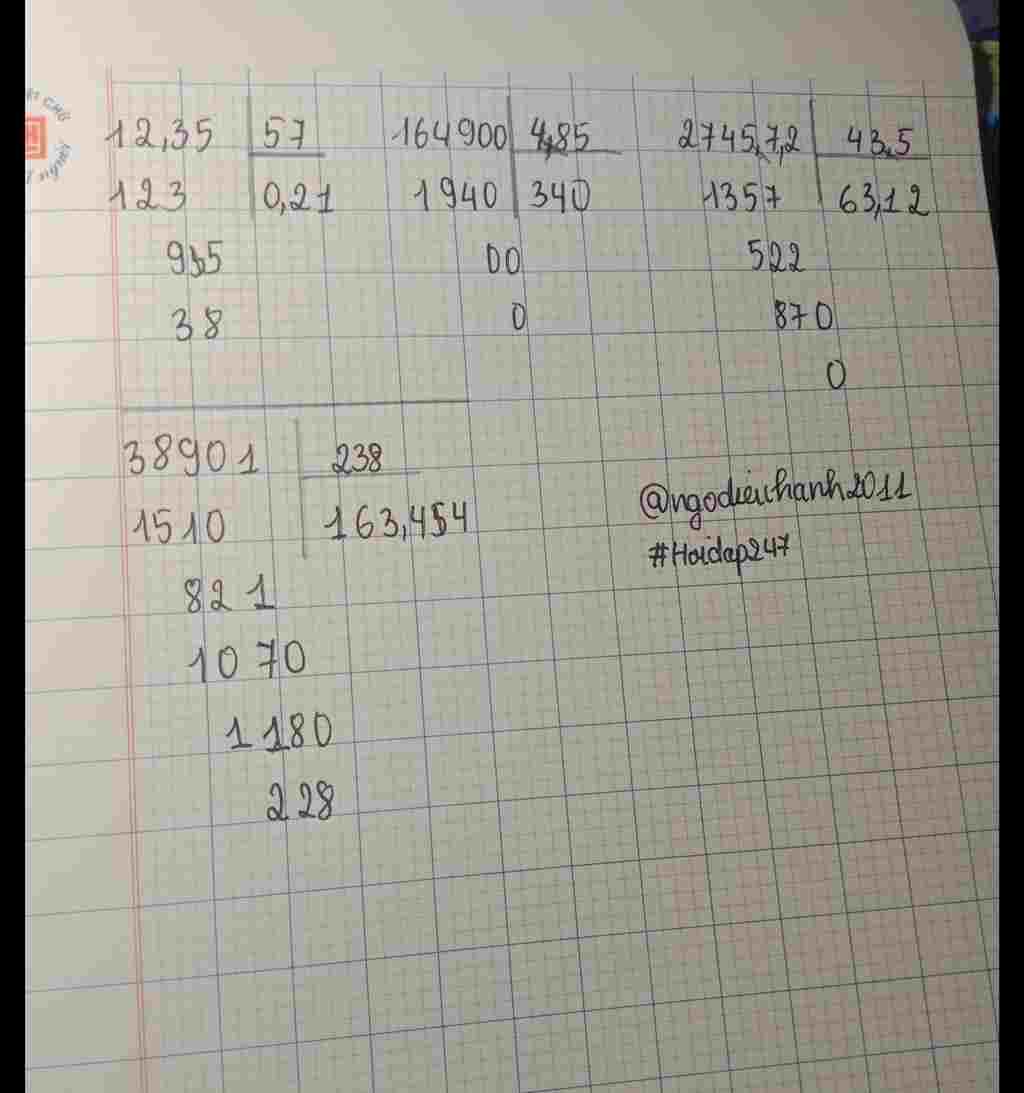 12,35 57 164900 4,85 2745,7,2 43,5
123 0,21 1940 340 1357 63,12
95 00 522
38 0 870
0
38901 238
1510 163,454
821
1070
1180
228
@ngodieuchanh2011
#Hoidap247